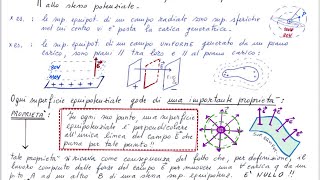 allo stesso potenziale.
×es.: le sup. equipot. di un campo radiale sono sup. sferiche
nel cui centro vi è posta la carica generatrice.
×es.: le sup. equipot. di un campo UNIFORME generato da un piano
carico, sono piani // tra loro e // al piano carico:
Ogni superficie equipotenziale gode di una importante proprietà:
PROPRIETÀ:
"In ogni suo punto, una superficie
equipotenziale è perpendicolare
all'unica linea del campo E che
passa per tale punto!!
tale proprietà si ricava come conseguenza del fatto che, per definizione, il
lavoro compiuto dalle forze del campo E per muovere una carica q da un
p.to A ad un altro B di una stessa sup. equipotenz. E' NULLO!!